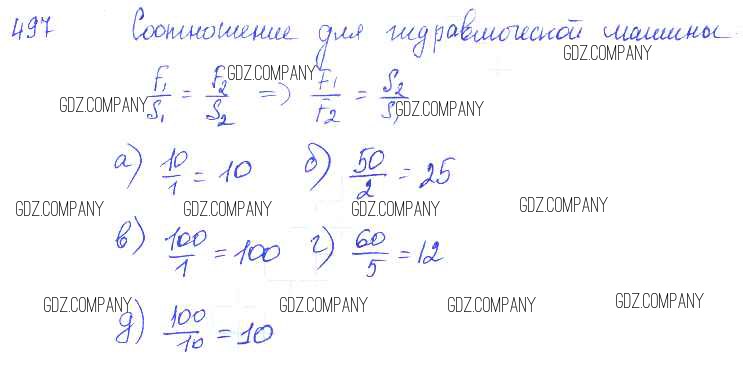 497 Соотношение для гидравлической машины
GDZ.COMPANY
F₁/S₁ = F₂/S₂ => F₁/F₂ = S₂/S₁
GDZ.COMPANY
GDZ.COMPANY GDZ.COMPANY
а) 10/1 = 10 б) 50/2 = 25
GDZ.COMPANY GDZ.COMPANY GDZ.COMPANY GDZ.COMPANY
в) 100/1 = 100 г) 60/5 = 12
GDZ.COMPANY GDZ.COMPANY GDZ.COMPANY GDZ.COMPANY
д) 100/10 = 10